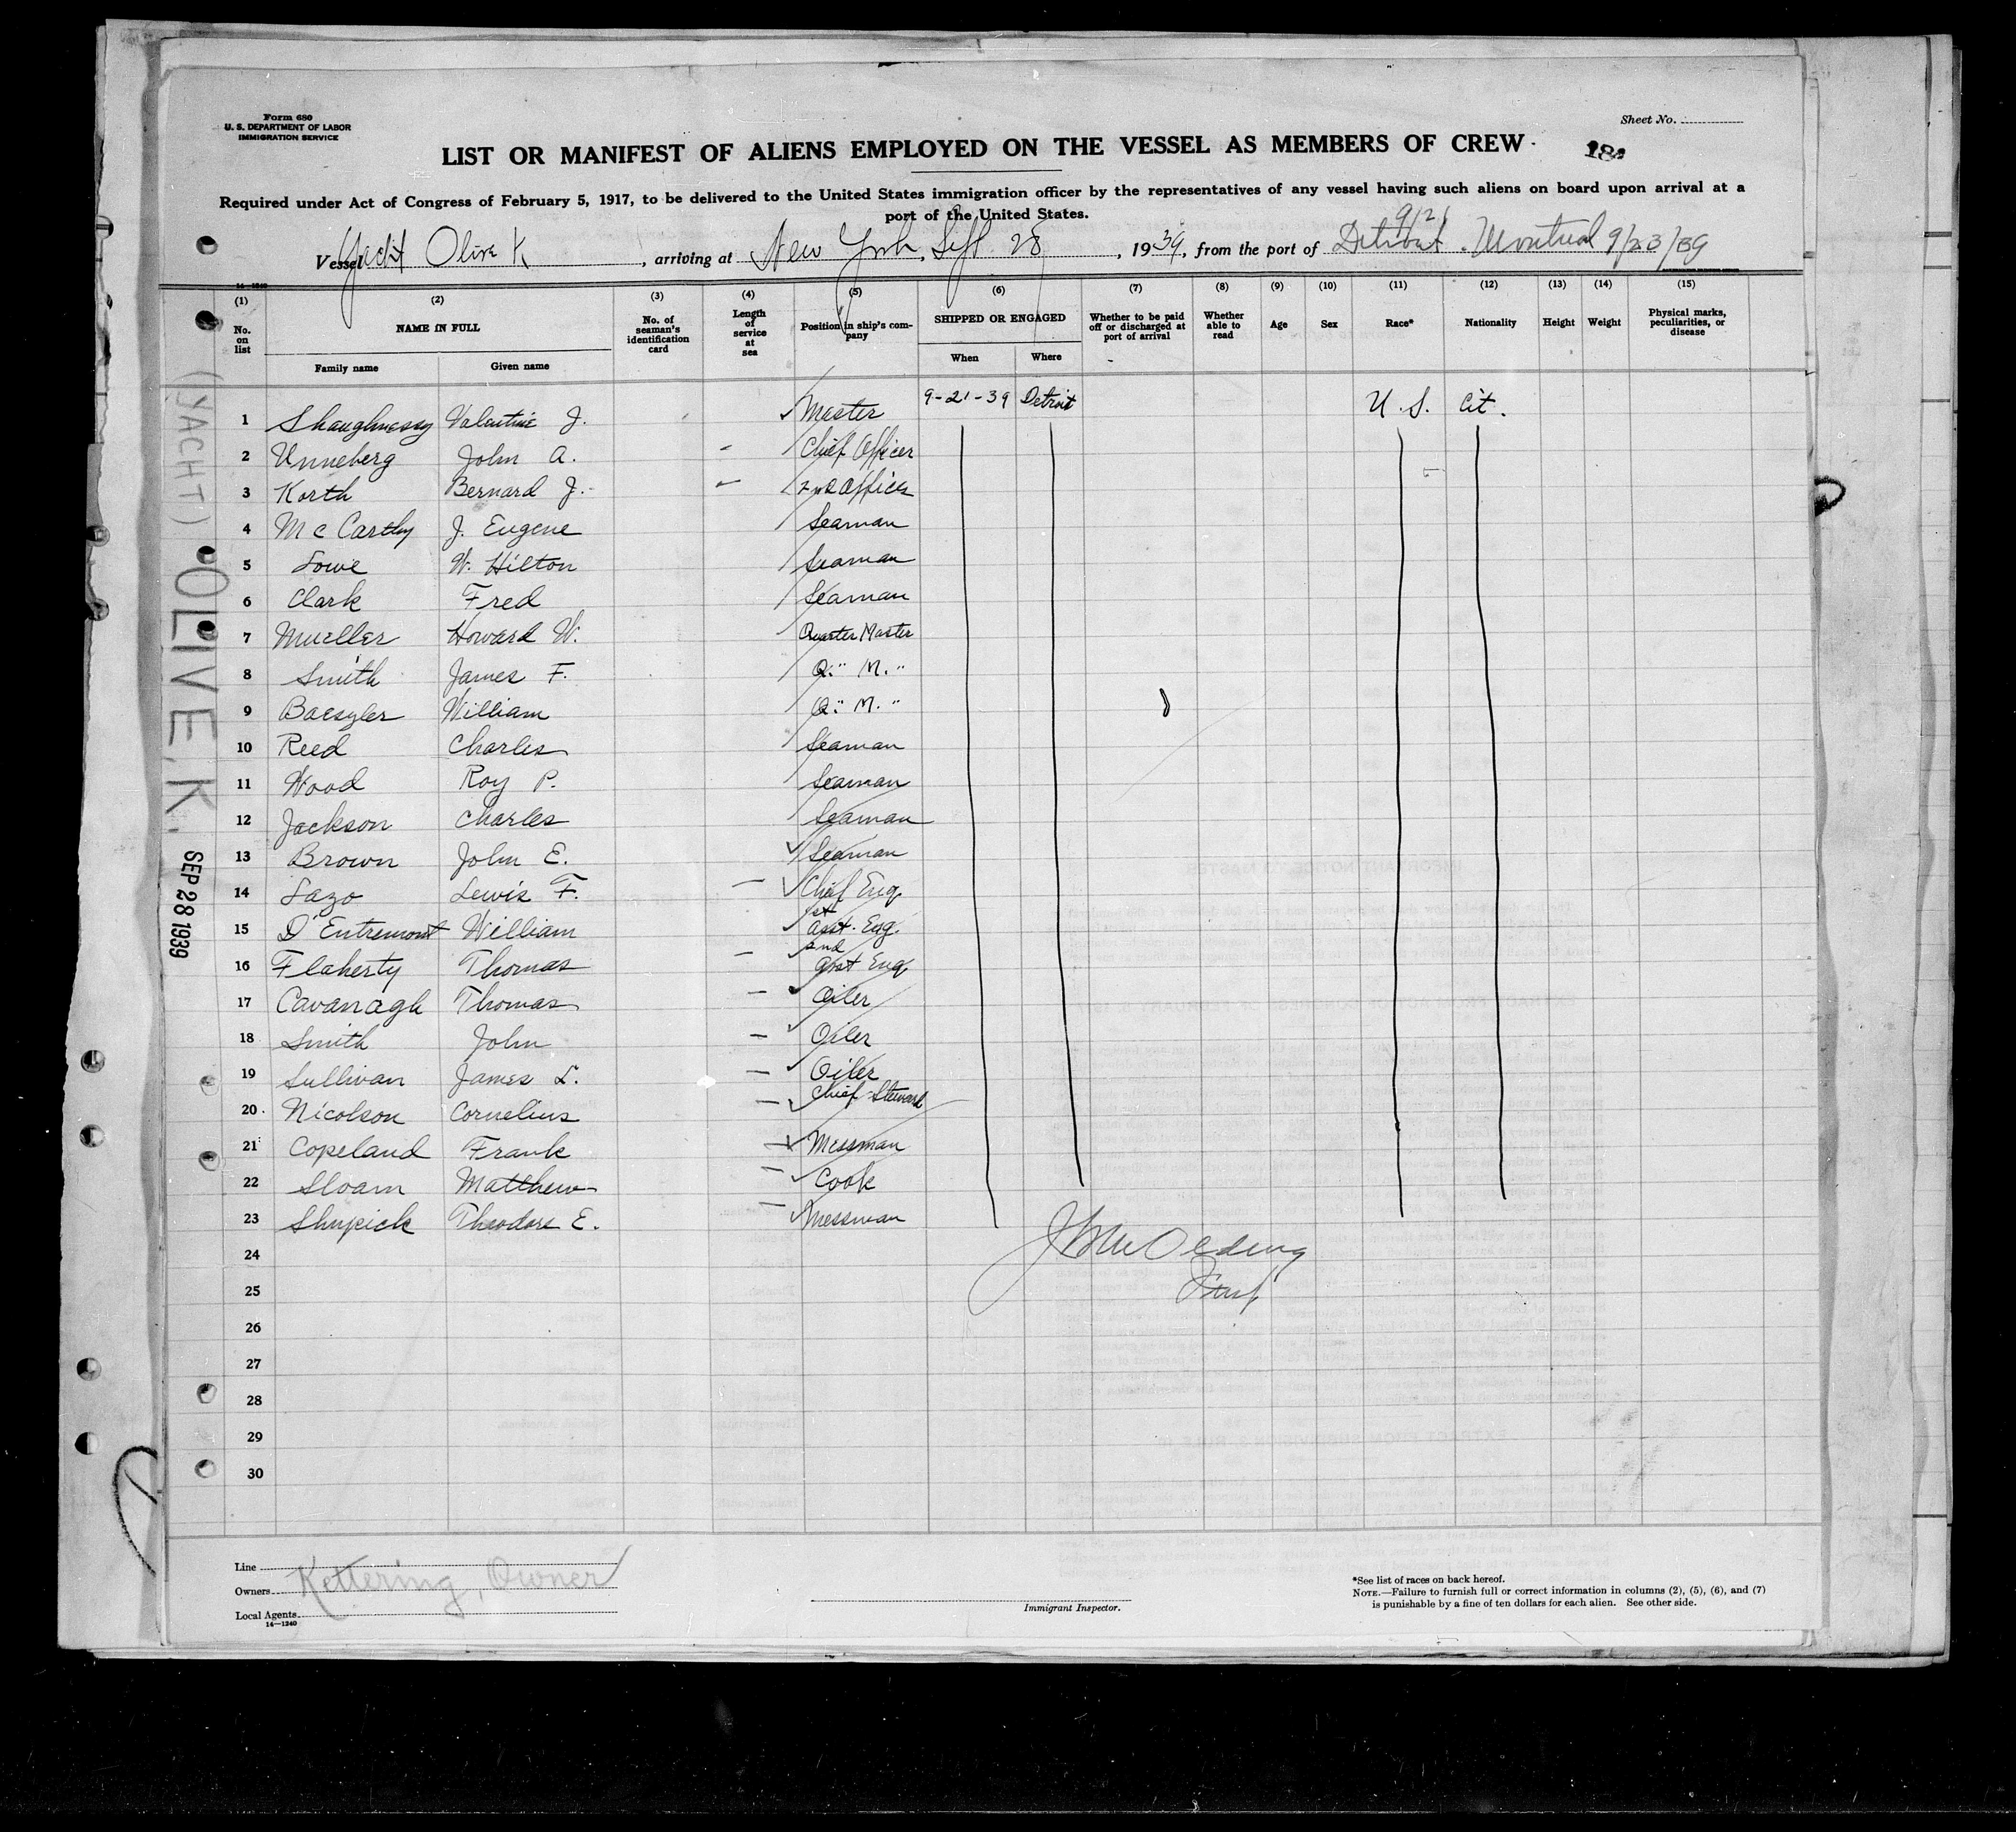 Form 680
U. S. DEPARTMENT OF LABOR
IMMIGRATION SERVICE
Sheet No.
LIST OR MANIFEST OF ALIENS EMPLOYED ON THE VESSEL AS MEMBERS OF CREW
184
Required under Act of Congress of February 5, 1917, to be delivered to the United States immigration officer by the representatives of any vessel having such aliens on board upon arrival at a
port of the United States.
9/21
Vessel Yacht Olive K, arriving at New York, Sept. 28, 1939, from the port of Detroit. Montreal 9/23/39
14—1240
(1) (2) (3) (4) (5) (6) (7) (8) (9) (10) (11) (12) (13) (14) (15)
No. on list
NAME IN FULL
Family name
Given name
No. of seaman's identification card
Length of service at sea
Position in ship's company
SHIPPED OR ENGAGED
When
Where
Whether to be paid off or discharged at port of arrival
Whether able to read
Age
Sex
Race*
Nationality
Height
Weight
Physical marks, peculiarities, or disease
1 Shaughnessy Valentine J. Master 9-21-39 Detroit U. S. Cit.
2 Unneberg John A. Chief Officer
3 Korth Bernard J. 2nd Officer
4 McCarthy J. Eugene Seaman
5 Lowe W. Hilton Seaman
6 Clark Fred Seaman
7 Mueller Howard W. Quarter Master
8 Smith James F. Q." M."
9 Baesyler William Q." M."
10 Reed Charles Seaman
11 Wood Roy P. Seaman
12 Jackson Charles Seaman
13 Brown John E. Seaman
14 Lazo Lewis F. Chief Eng.
15 D'Entremont William 1st Asst. Eng.
16 Flaherty Thomas 2nd Asst Eng.
17 Cavanagh Thomas Oiler
18 Smith John Oiler
19 Sullivan James L. Oiler
20 Nicolson Cornelius Chief Steward
21 Copeland Frank Messman
22 Sloam Matthew Cook
23 Shupick Theodore E. Messman
24
25
26
27
28
29
30
(YACHT) OLIVE.K.
SEP 28 1939
Line
Owners Kettering, Owner
Local Agents
14—1240
Immigrant Inspector.
*See list of races on back hereof.
NOTE.—Failure to furnish full or correct information in columns (2), (5), (6), and (7)
is punishable by a fine of ten dollars for each alien. See other side.